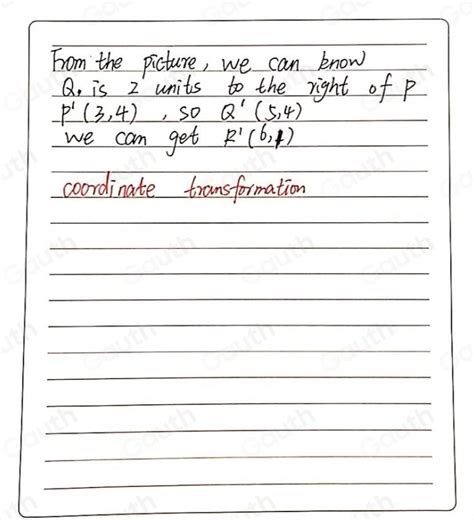 From the picture, we can know
Q, is 2 units to the right of P
P'(3,4), so Q'(5,4)
we can get R'(6,1)
coordinate transformation